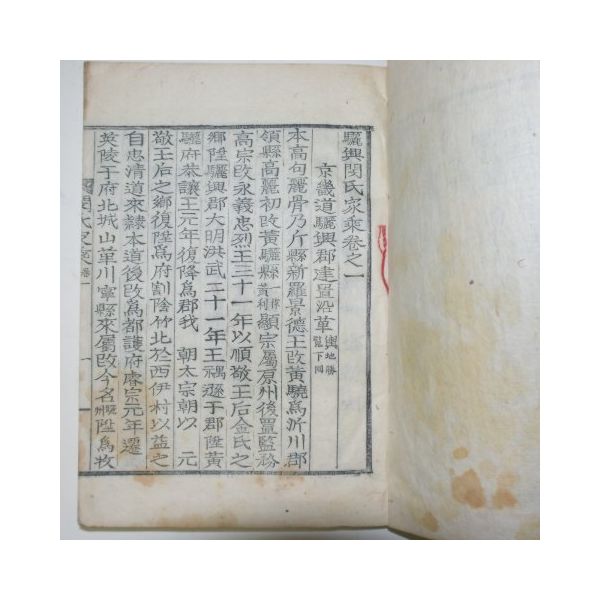 驪興閔氏家乘卷之一
京畿道驪興郡建置沿革輿地勝覽下同
本高句麗骨乃斤縣新羅景德王改黃驍爲沂川郡
領縣高麗初改黃驪縣一轉黃利顯宗屬原州後置監務
高宗改永義忠烈王三十一年以順敬王后金氏之
鄕陞驪興郡大明洪武二十一年王禑遜于郡陞黃
驪府恭讓王元年復降爲郡我 朝太宗朝以 元
敬王后之鄕復陞爲府割陰竹北於西伊村以益之
自忠淸道來隸本道後改爲都護府睿宗元年遷
英陵于府北城山革川寧縣來屬改今名驪州陞爲牧
閔氏家